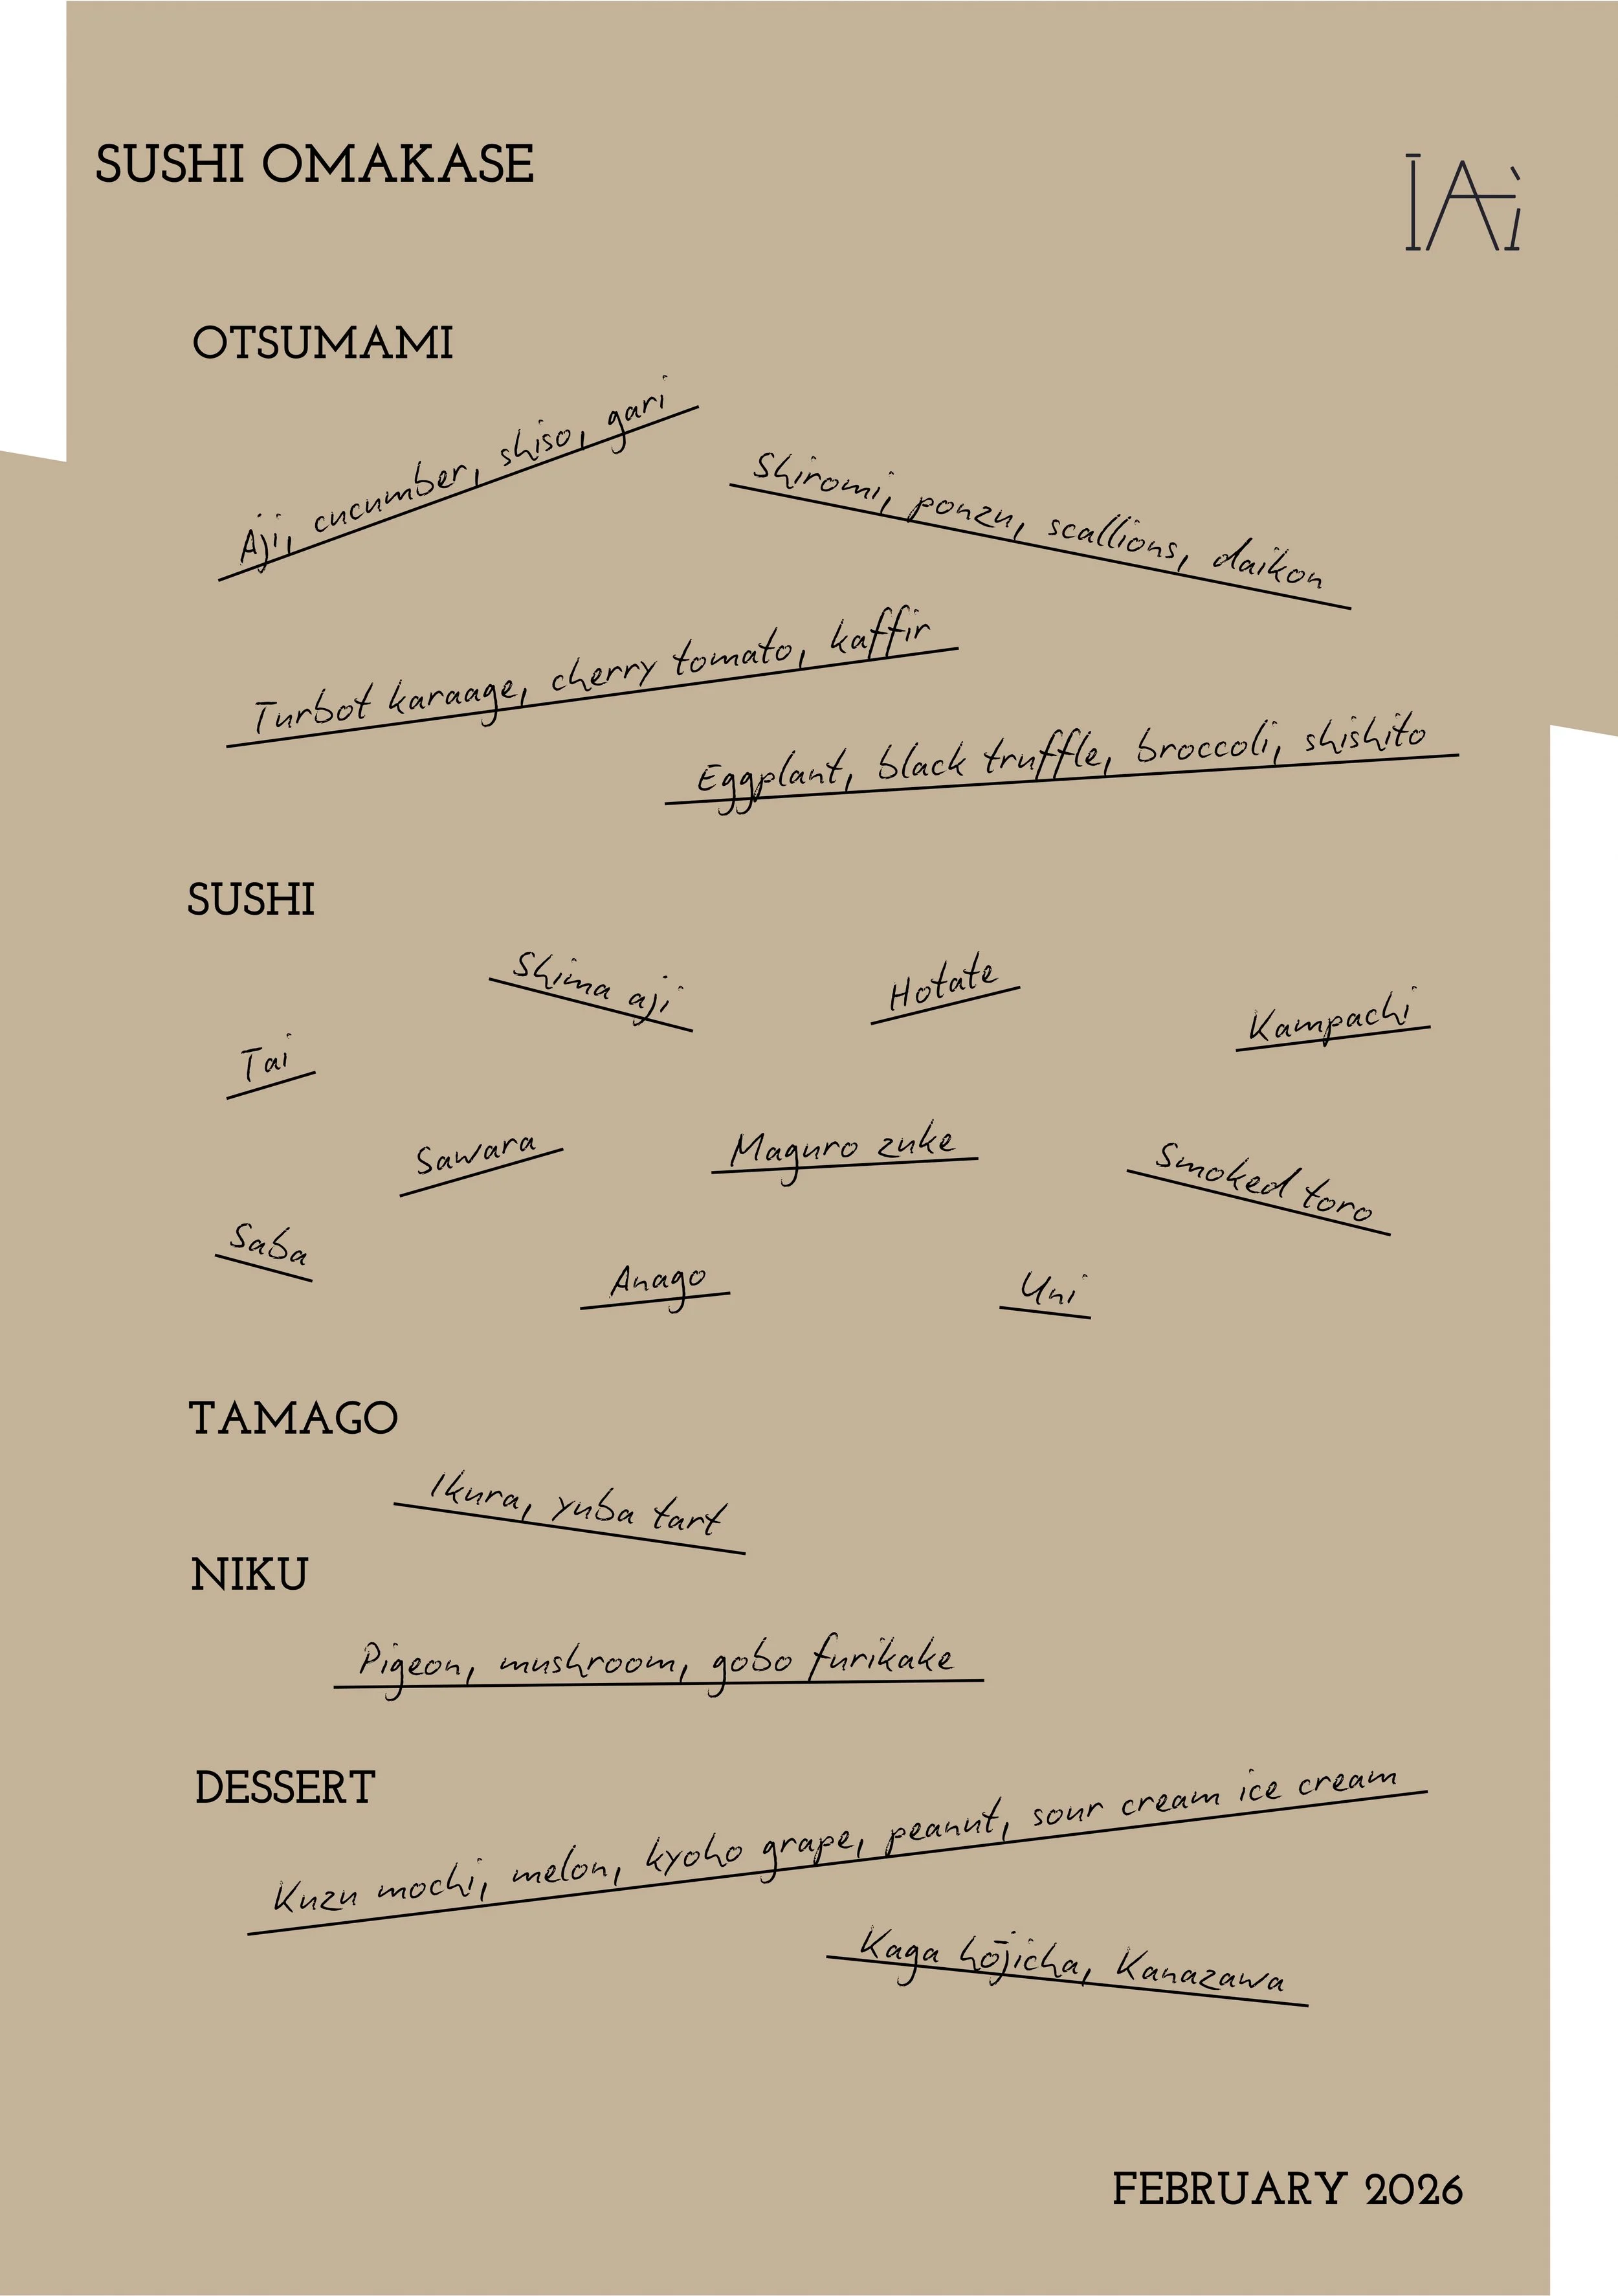 SUSHI OMAKASE
IAi
OTSUMAMI
Aji, cucumber, shiso, gari
Shiromi, ponzu, scallions, daikon
Turbot karaage, cherry tomato, kaffir
Eggplant, black truffle, broccoli, shishito
SUSHI
Tai
Shima aji
Hotate
Kampachi
Sawara
Maguro zuke
Smoked toro
Saba
Anago
Uni
TAMAGO
Ikura, yuba tart
NIKU
Pigeon, mushroom, gobo furikake
DESSERT
Kuzu mochi, melon, kyoho grape, peanut, sour cream ice cream
Kaga hōjicha, Kanazawa
FEBRUARY 2026